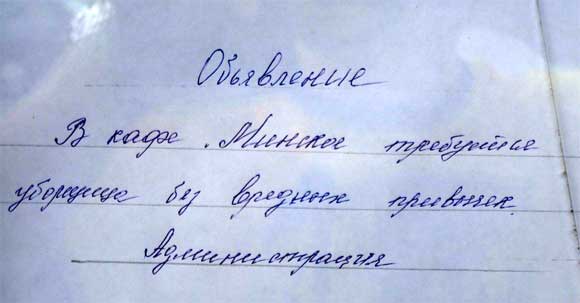 Объявление
В кафе Минское требуется
уборщица без вредных привычек.
Администрация